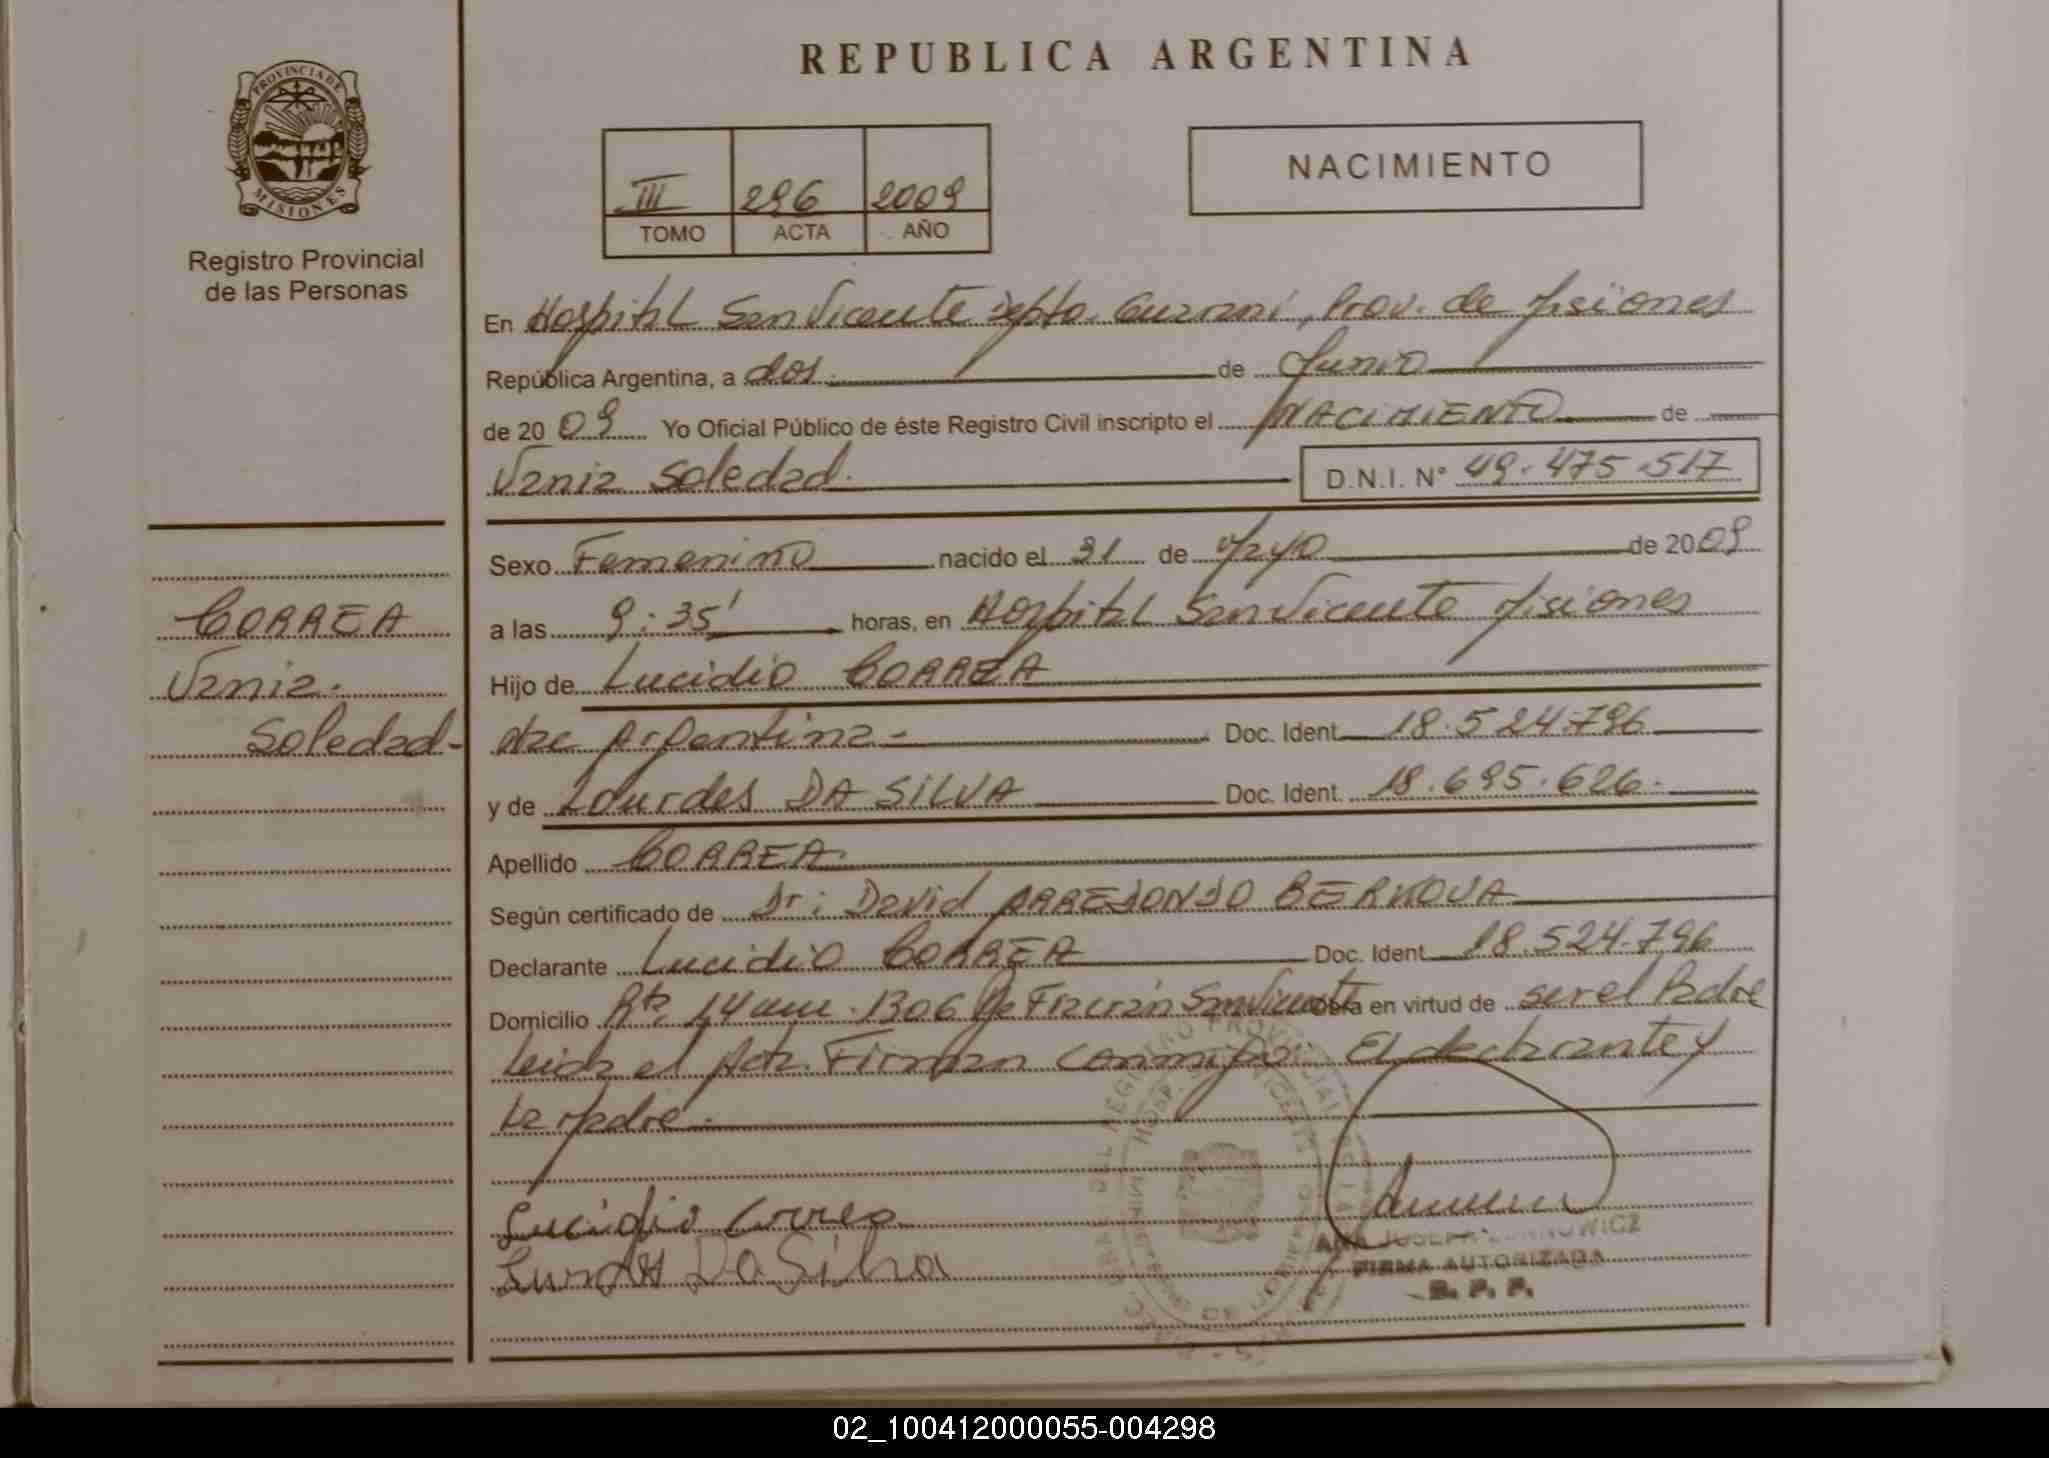 PROVINCIA DE
MISIONES
Registro Provincial
de las Personas
CORREA
Vania
Soledad-
REPUBLICA ARGENTINA
III 296 2009
TOMO ACTA AÑO
NACIMIENTO
En Hospital San Vicente Depto. Guarani, Prov. de Misiones
República Argentina, a dos de Junio
de 2009 Yo Oficial Público de éste Registro Civil inscripto el NACIMIENTO de
Vania Soledad. D.N.I. N° 49.475.517
Sexo Femenino nacido el 31 de Mayo de 2009
a las 9:35' horas, en Hospital San Vicente Misiones
Hijo de Lucidio CORREA
Nac Argentina- Doc. Ident. 18.524.796
y de Lourdes DA SILVA Doc. Ident. 18.695.626.
Apellido CORREA.
Según certificado de Dr: David ARREDONDO BERNOVA
Declarante Lucidio CORREA Doc. Ident. 18.524.796
Domicilio Rta. 14 1306 Fracrán San Vicente Obra en virtud de ser el Padre
Leida el Acta. Firman Conmigo. El declarante y
La Madre.
Lucidio Correa
Da Silva
FIRMA AUTORIZADA
R. P. P.
02_100412000055-004298